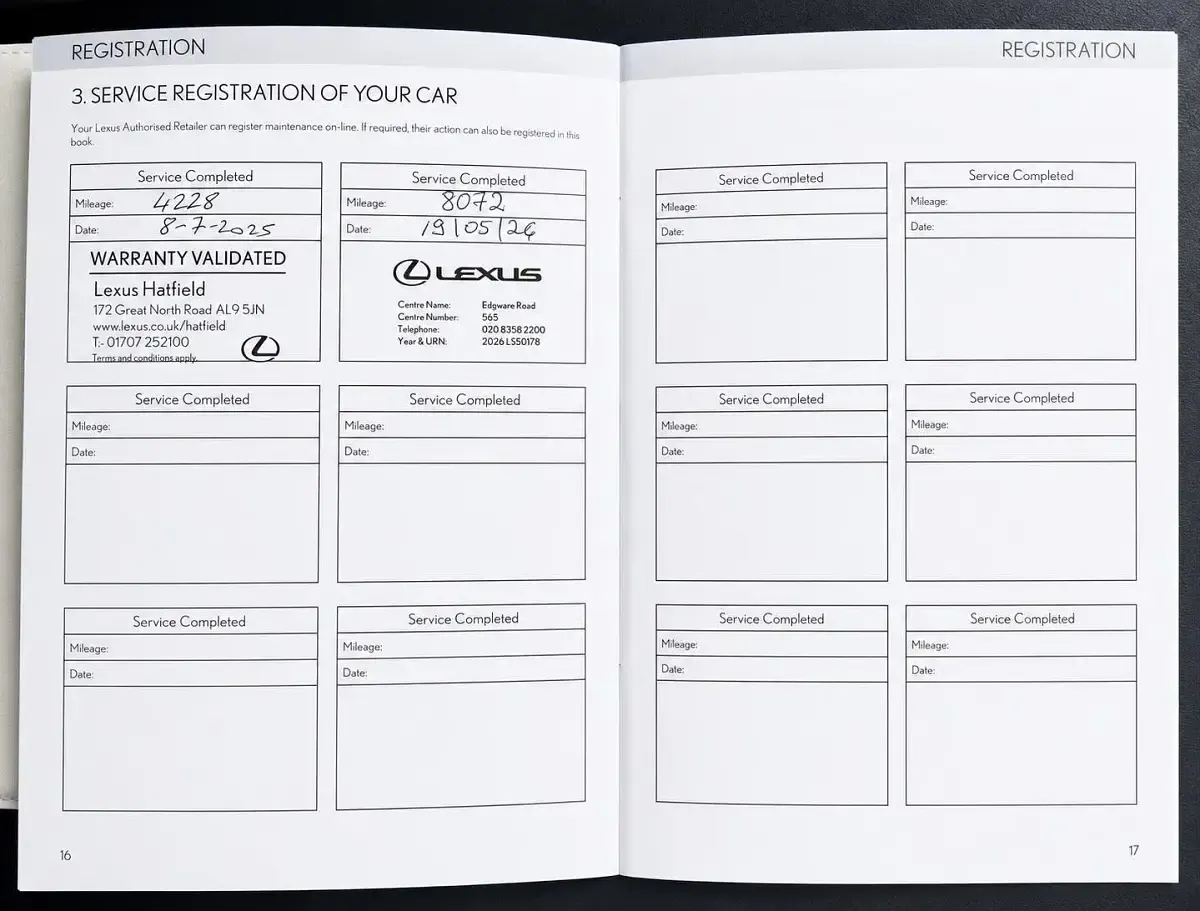 REGISTRATION
3. SERVICE REGISTRATION OF YOUR CAR
Your Lexus Authorised Retailer can register maintenance on-line. If required, their action can also be registered in this
book.
Service Completed
Mileage: 4228
Date: 8-7-2025
WARRANTY VALIDATED
Lexus Hatfield
172 Great North Road AL9 5JN
www.lexus.co.uk/hatfield
T:- 01707 252100
Terms and conditions apply.
Service Completed
Mileage: 8072
Date: 19/05/26
LEXUS
Centre Name: Edgware Road
Centre Number: 565
Telephone: 020 8358 2200
Year & URN: 2026 LS50178
Service Completed
Mileage:
Date:
Service Completed
Mileage:
Date:
Service Completed
Mileage:
Date:
Service Completed
Mileage:
Date:
16
REGISTRATION
Service Completed
Mileage:
Date:
Service Completed
Mileage:
Date:
Service Completed
Mileage:
Date:
Service Completed
Mileage:
Date:
Service Completed
Mileage:
Date:
Service Completed
Mileage:
Date:
17